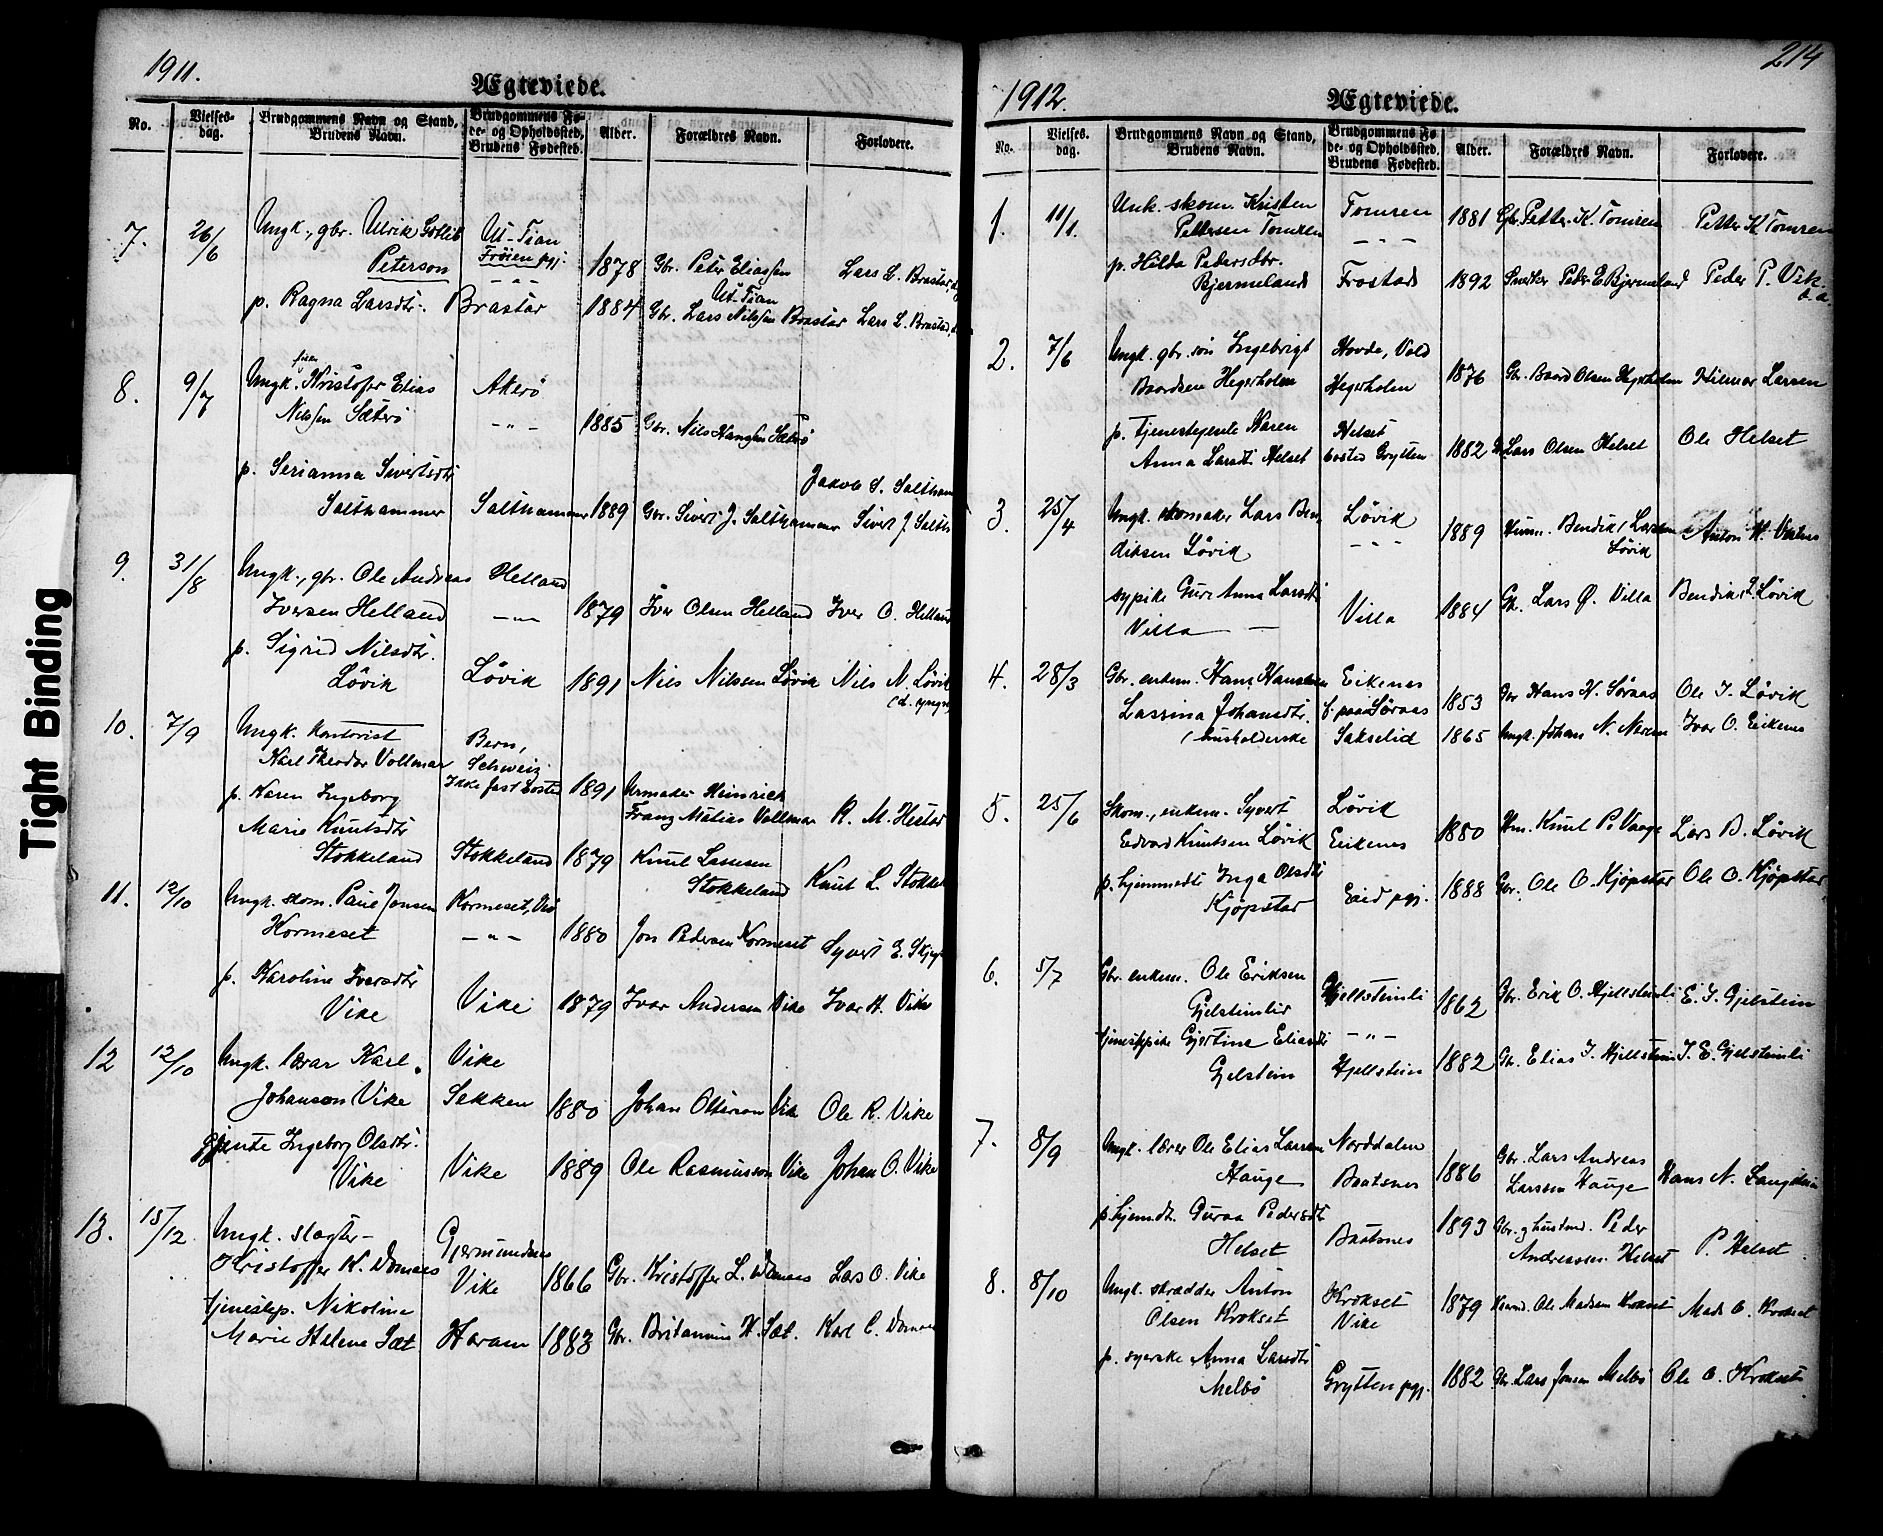 1911.
Ægteviede.
No.
Vielses-
dag.
Brudgommens Navn og Stand,
Brudens Navn.
Brudgommens Fø-
de- og Opholdssted,
Brudens Fødested.
Alder.
Forældres Navn.
Forlovere.
7. 26/6 Ungk., gbr. Ulrik Gotlib Ut-Tian
Peterson Frøien pgj. 1878 Gbr. Peter Eliassen Lars L. Brastad
Ut-Tian
p. Ragna Larsdtr. Brastad 1884 Gbr. Lars Nilssen Brastad Lars L. Brastad
8. 9/7 Ungk. fisker Kristofer Elias Akerø
Nilssen Sæterø - " - 1885 Gbr. Nils Hanssen Sæterø
p. Serianna Sivertsdtr Jakob S. Saltham
Salthammer Salthammer 1889 Gbr. Sivert J. Salthammer Sivert J. Salth
9. 31/8 Ungk., gbr. Ole Andreas Helland
Iversen Helland - " - 1879 Iver Olsen Helland Iver O. Helland
p. Sigrid Nilsdtr.
Løvik Løvik 1891 Nils Nilssen Løvik Nils N. Løvik
(d. yngre
10. 7/9 Ungk. kontorist Bern,
Karl Theodor Vollmar Schweiz
Ikke fast bosted 1891 Urmaker Heinrich
Franz Matias Vollmar R. M. Hestad
p. Karen Ingeborg
Marie Knutsdtr
Stokkeland Stokkeland 1879 Knut Larssen
Stokkeland Knut L. Stokkel
11. 12/10 Ungk. skom. Paul Jonsen Kormeset, Vid
Kormeset - " - 1880 Jon Pedersen Kormeset Syvert E.
p. Karoline Iversdtr
Vike Vike 1879 Ivar Andersen Vike Ivar A. Vike
12 12/10 Ungk. lærar Karl Vike
Johanson Vike Sekken 1880 Johan Otterson Vik Ole R. Vike
gjente Ingeborg Olsdtr.
Vike Vike 1889 Ole Rasmusson Vike Johan O. Vike
13. 15/12 Ungk. slagter Gjermundnes
Kristoffer K. Domaas Vike 1866 Gbr. Kristoffer L. Domaas Lars O. Vike
tjenestep. Nikoline
Marie Helene Sæt Haram 1883 Gbr. Britanius H. Sæt. Karl C. Domaas
214
1912.
Ægteviede.
No.
Vielses-
dag.
Brudgommens Navn og Stand,
Brudens Navn.
Brudgommens Fø
de- og Opholdssted,
Brudens Fødested.
Alder.
Forældres Navn.
Forlovere.
1. 11/1. Unk. skom. Kristen Tomren 1881 Gbr. Petter K. Tomren Petter K Tomren
Pettersen Tomren - " -
p. Hilda Pedersdtr.
Bjermeland Frostad 1892 Snekker Peder E Bjermeland Peder P. Vik
2. 7/6 Ungk. gbr. søn Ingebrigt Hovde, Vold
Baardsen Hegerholm Hegerholm 1876 Gbr. Baard Olsen Hegerholm Hilmar Larsen
p. Tjenestepike Karen Helset
Anna Larsdtr Helset bosted Grytten 1882 Gbr Lars Olsen Helset Ole Helset
3. 25/4 Ungk. skomaker Lars Ben Løvik
diksen Løvik - " - 1889 Husm. Bendik Larssen
Løvik Anton H.
sypike Guri Anna Larsdtr
Villa Villa 1884 Gbr. Lars Ø. Villa Bendik L. Løvik
4. 28/3 Gbr. enkem. Hans Hanssen Eikenes
f. paa Søraas 1853 Gbr Hans H. Søraas Ole I. Løvik
Lassina Johansdtr.
(husholderske Sakselid 1865 Ungk. Johan N. Iver O. Eikenes
5. 25/6 Skom., enkem. Syvert Løvik
Edvard Knutsen Løvik Eikenes 1880 Hm. Knut P. Vaage Lars B. Løvik
p. hjemmedtr Inga Olsdtr
Kjøpstad Eid pgj. 1888 Gbr. Ole O. Kjøpstad Ole O. Kjøpstad
6. 5/7 Gbr. enkem. Ole Eriksen
Gjelstenlid Hjellstenli 1862 Gbr. Erik O. Hjellstenli E. I. Gjelstein
tjenestpike Gjertine Eliasdtr - " -
Gjelstein Hjellstein 1882 Gbr. Elias I. Hjellstein I. E. Gjelstenli
7. 8/9 Ungk. lærer Ole Elias Larssen Norddalen
Hauge Baatsnes 1886 Gbr. Lars Andreas
Larssen Hauge Hans N.
p. hjemdtr. Guraa Pedersdtr
Helset Baatsnes 1893 Gbr. g hustru. Peder
Andreassen Helset P. Helset
8. 8/10 Ungk. skrædder Anton Krokset
Olsen Krokset Vike 1879 Ole Madsen Krokset Mads O. Krokset
p. syerske Anna Larsdtr
Melbø Grytten pgj. 1882 Gbr. Lars Jonsen Melbø Ole O. Krokset
Tight Binding